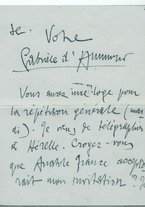 de. Votre
Gabriele d'Annunzio
Vous avez une loge pour
la répétition générale (mar
di). Je viens de télégraphier
à Hérelle. Croyez-vous
que Anatole France accepte
rait mon invitation ?